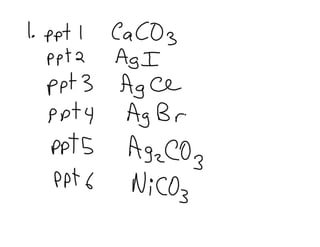 1. ppt 1 CaCO₃
ppt 2 AgI
ppt 3 AgCl
ppt 4 AgBr
ppt 5 Ag₂CO₃
ppt 6 NiCO₃